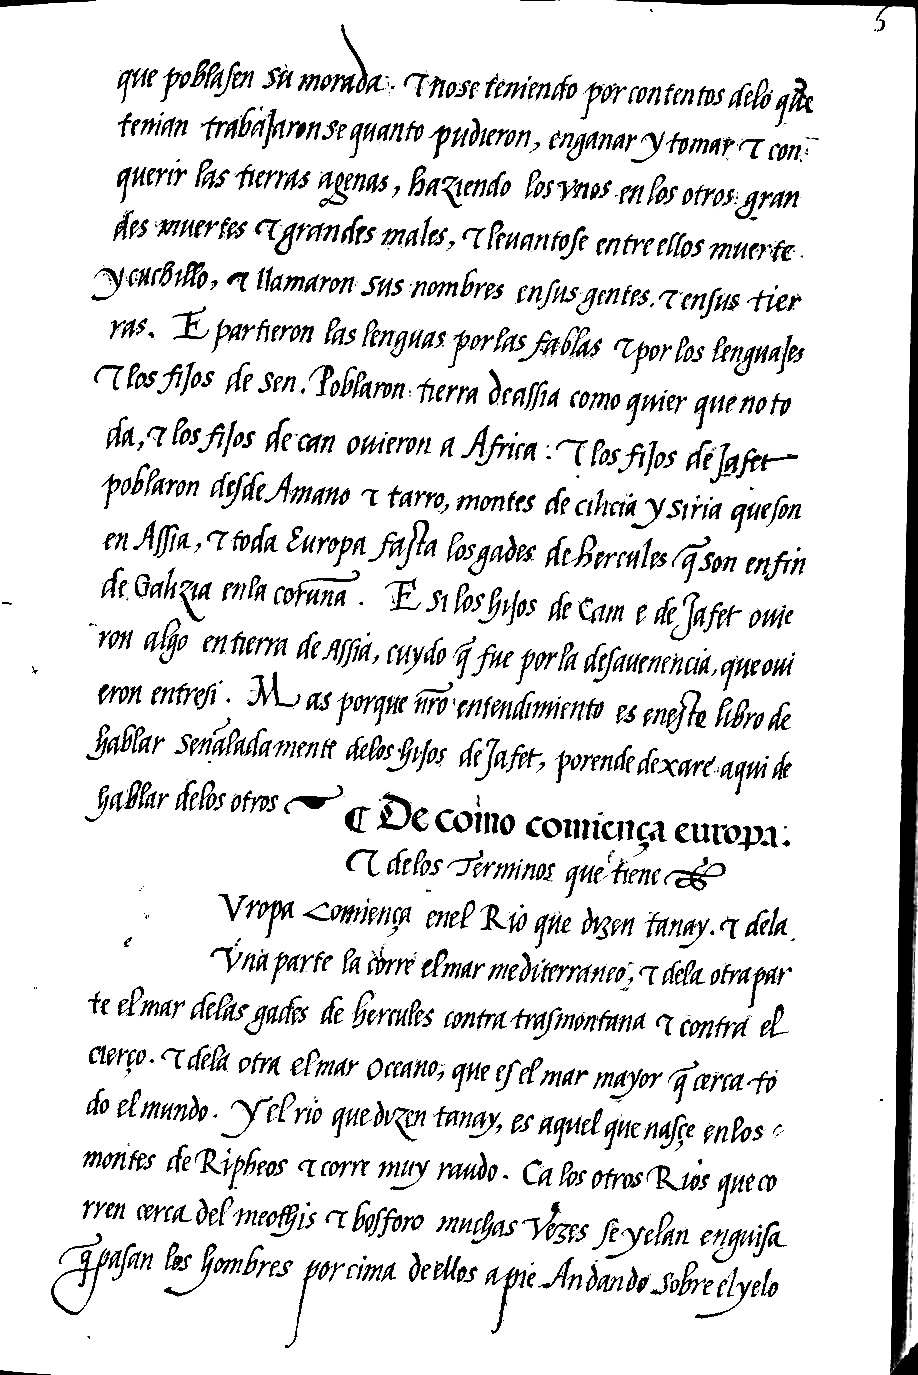 5
que poblasen su morada. & nose teniendo por contentos delo que
tenian trabajaronse quanto pudieron, enganar y tomar & con
querir las tierras agenas, haziendo los vnos en los otros gran
des muertes & grandes males, & leuantose entre ellos muerte
y cuchillo, & llamaron sus nombres ensus gentes. & ensus tier
ras. E partieron las lenguas por las fablas & por los lenguajes
& los fijos de sen. Poblaron tierra de assia como quier que no to
da, & los fijos de can ouieron a Africa: & los fijos de Jafet
poblaron desde Amano & tarro, montes de cilicia y siria que son
en Assia, & toda Europa fasta los gades de hercules q̃ son enfin
de Galizia enla coruña. E si los hijos de Cam e de Jafet ouie
ron algo en tierra de Assia, cuydo q̃ fue por la desauenencia, que oui
eron entresi. Mas porque nr̃o entendimiento es eneste libro de
hablar señaladamente delos hijos de Jafet, porende dexare aqui de
hablar delos otros
¶ De como comiença europa:
& delos Terminos que tiene
Vropa Comiença enel Rio que dizen tanay. & dela
e
Vna parte la corre el mar mediterraneo, & dela otra par
te el mar delas gades de hercules contra trasmontana & contra el
cierço. & dela otra el mar Oceano, que es el mar mayor q̃ cerca to
do el mundo. Y el rio que dizen tanay, es aquel que nasçe en los
montes de Ripheos & corre muy raudo. Ca los otros Rios que co
rren cerca del meothis & bosforo muchas Vezes se yelan enguisa
q̃ pasan los hombres por cima de ellos a pie Andando sobre el yelo